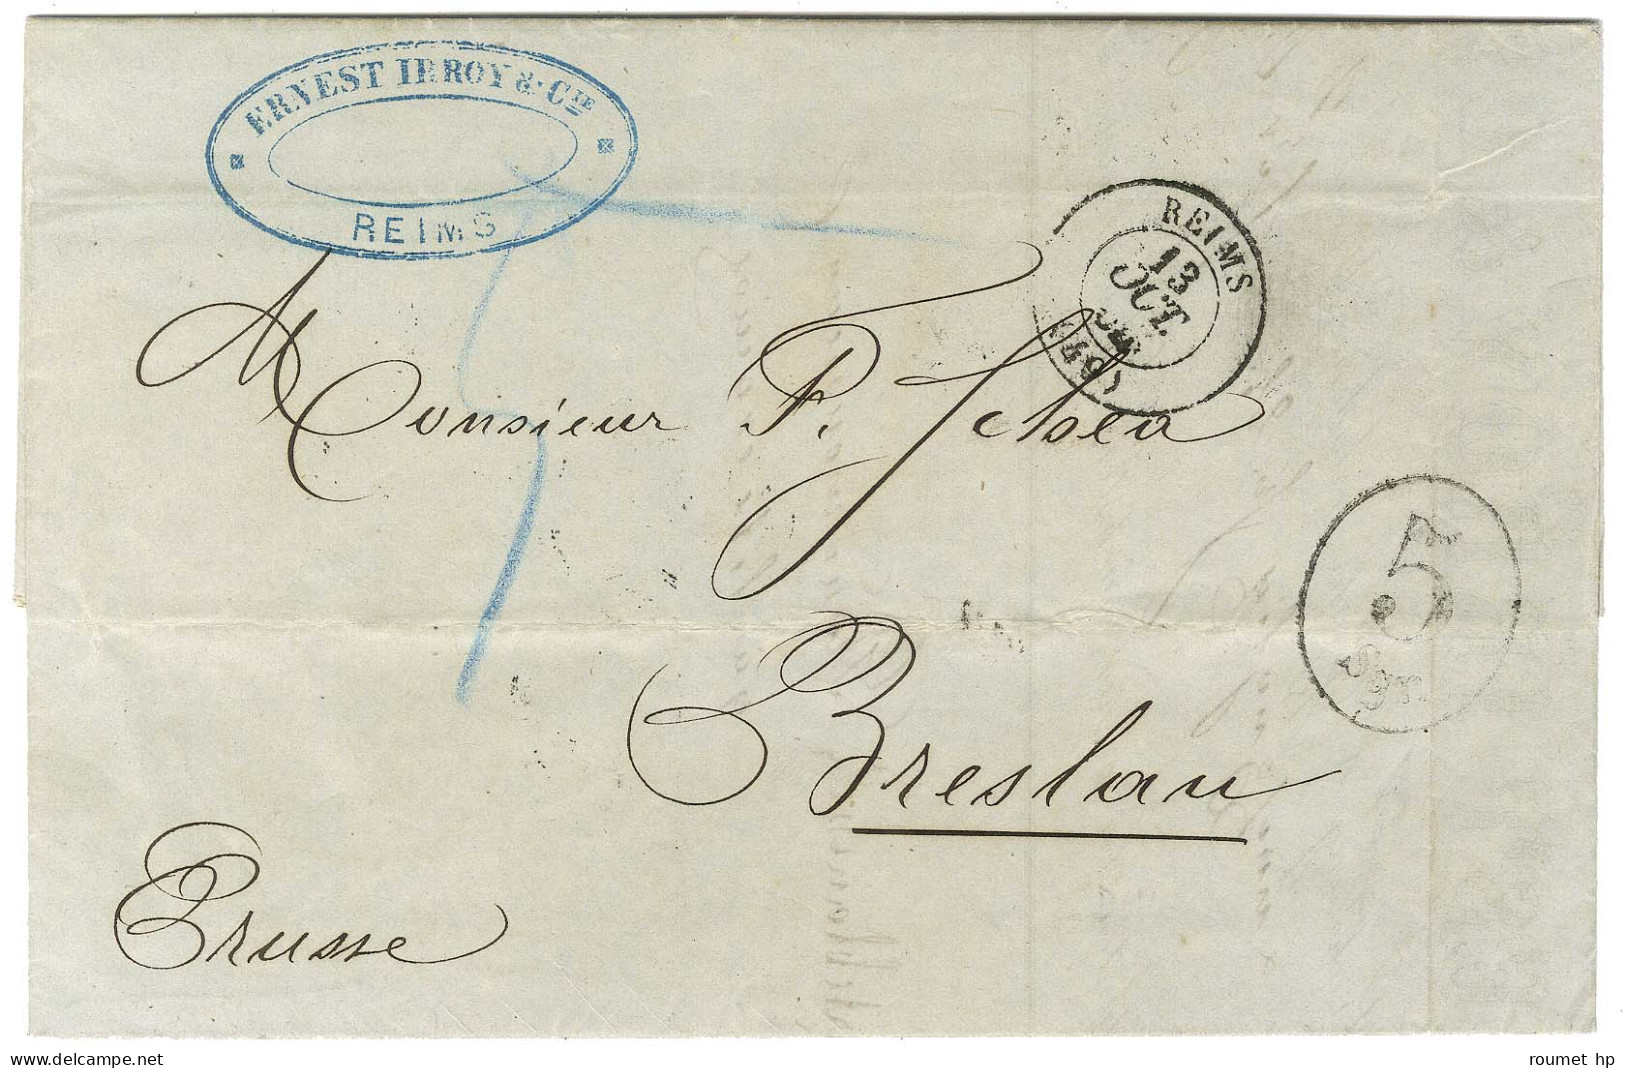 ERNEST IRROY & CIE
REIMS
REIMS
13
OCT.
(49)
Monsieur P. Schea
5
Sgr.
Breslau
Prusse
delcampe.net
roumet hp